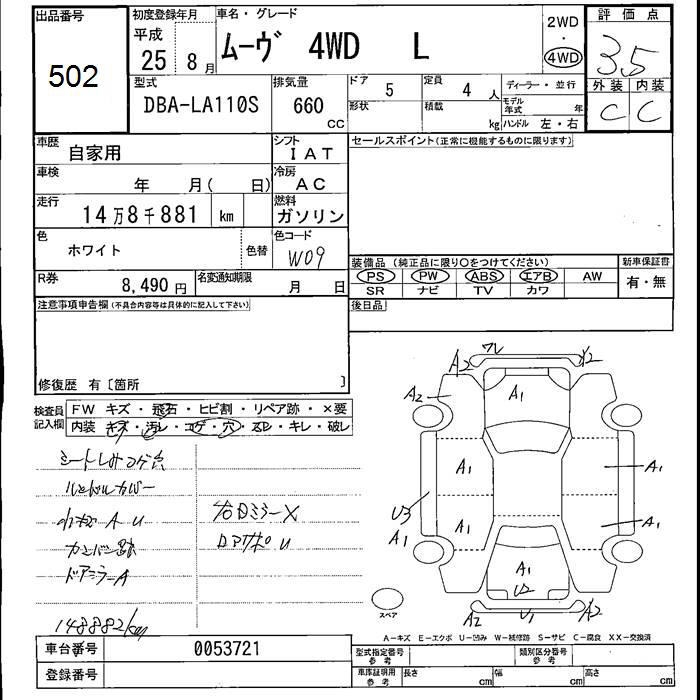 出品番号
502
初度登録年月
平成
25年 8月
車名・グレード
ムーヴ 4WD L
2WD
・
4WD
評価点
3.5
外装 内装
C C
型式
DBA-LA110S
排気量
660
CC
ドア 5
定員 4 人
形状
積載
kg
ディーラー・並行
モデル年式 年
ハンドル 左・右
車歴
自家用
シフト
IAT
セールスポイント(正常に機能するものに限ります)
車検
年 月( 日)
冷房
AC
走行
14万8千881 km
燃料
ガソリン
色
ホワイト
色替
色コード
W09
装備品 (純正品に限り○をつけてください)
PS PW ABS エアB AW
SR ナビ TV カワ
新車保証書
有・無
R券
8,490円
名変通知期限
月 日
後日品
注意事項申告欄(不具合内容等は具体的に記入して下さい)
修復歴 有〔箇所 〕
検査員記入欄
FW キズ・飛石・ヒビ割・リペア跡・×要
内装 キズ・汚レ・コゲ・穴・スレ・キレ・破レ
ハンドルカバー
A U
カンバン跡
ドアミラーA
右ドミラーX
148882km
A2
ワレ
X2
A2
A1
A1
A1
U3
A1
A1
A1
A1
U2
A2
U1
A2
スペア
A-キズ E-エクボ U-凹み W-補修跡 S-サビ C-腐食 XX-交換済
車台番号
0053721
登録番号
型式指定番号
参考
類別区分番号
参考
車庫証明用
参考
長さ cm
幅 cm
高さ cm